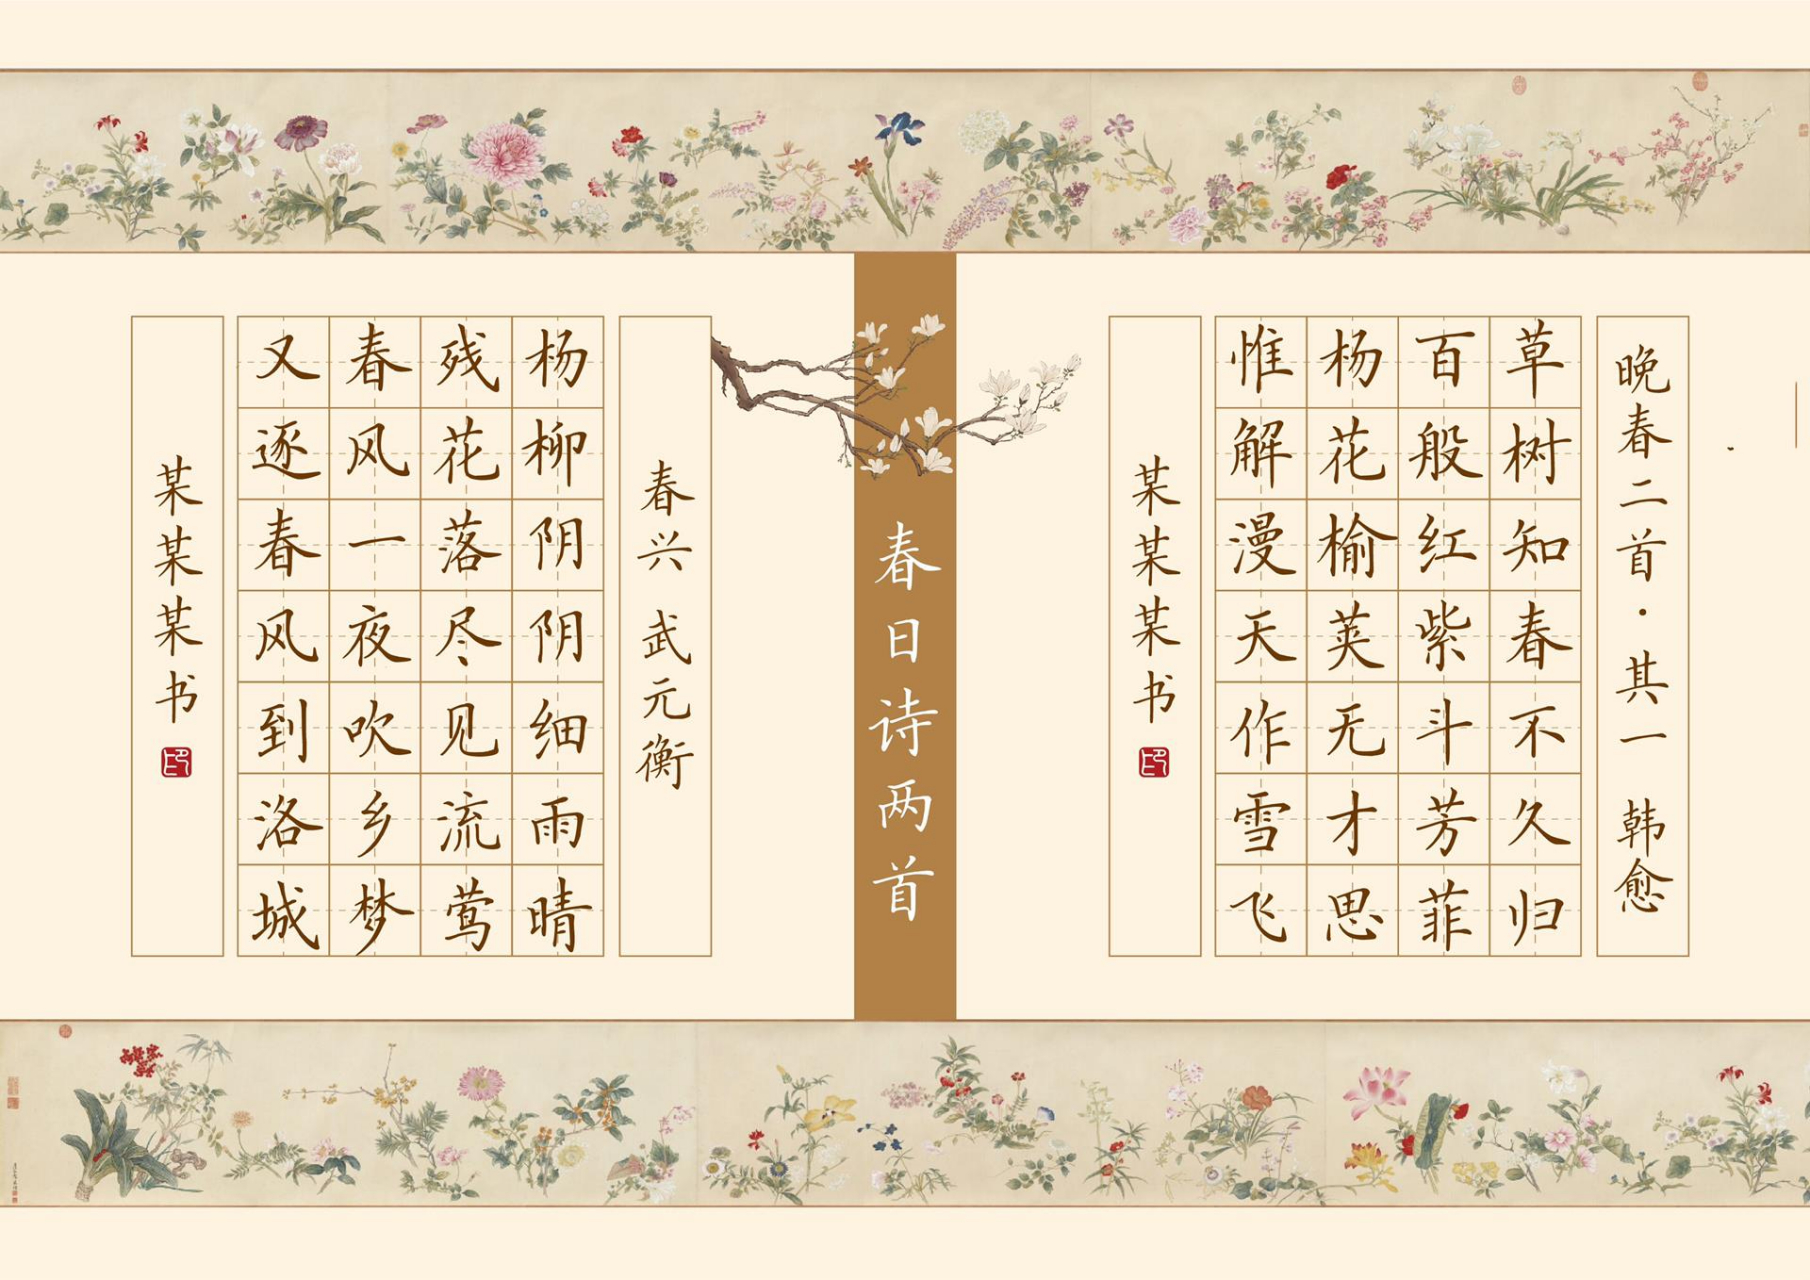 晚春二首·其一 韩愈
草树知春不久归
百般红紫斗芳菲
杨花榆荚无才思
惟解漫天作雪飞
某某某书
印
春日诗两首
春兴 武元衡
杨柳阴阴细雨晴
残花落尽见流莺
春风一夜吹乡梦
又逐春风到洛城
某某某书
印